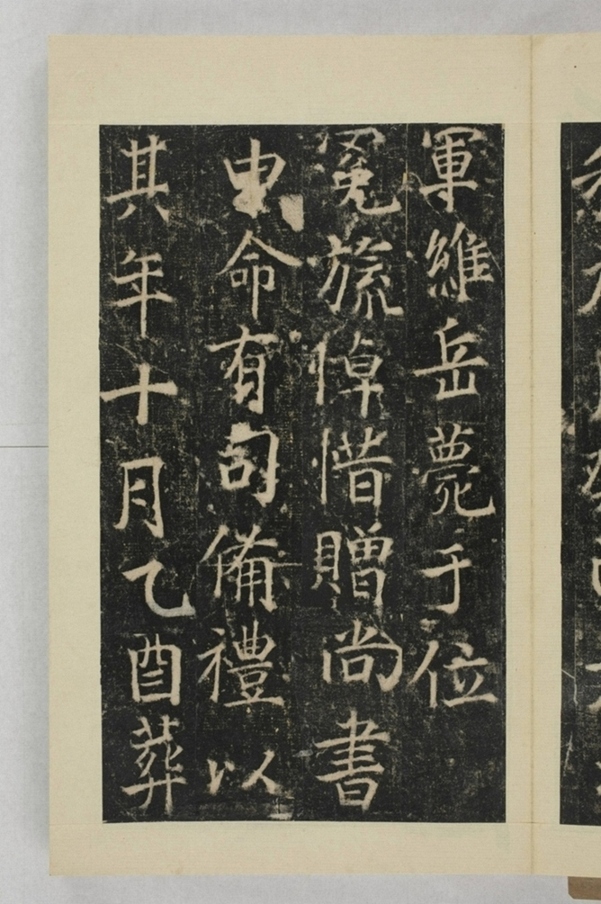 軍維岳薨于位
冕旒悼惜贈尚書
申命有司備禮以
其年十月乙酉葬